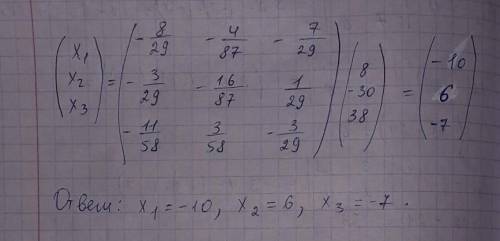 (x₁ x₂ x₃) = (-8/29 -4/87 -7/29
-3/29 -16/87 1/29
-11/58 3/58 -3/29) (8 -30 38) = (-10 6 -7)
Ответ: x₁ = -10, x₂ = 6, x₃ = -7.